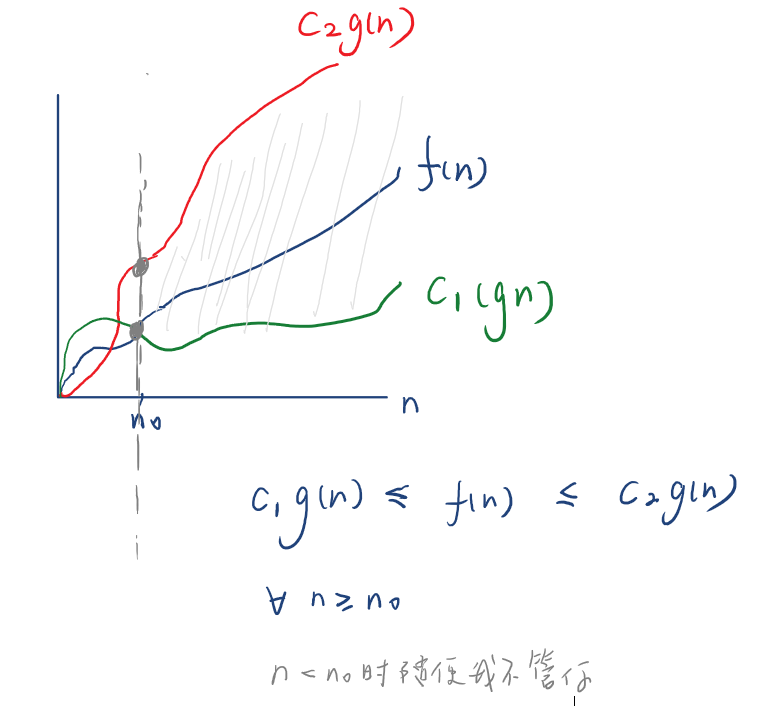 C₂g(n)
f(n)
C₁(gn)
n
n₀
C₁g(n) ≤ f(n) ≤ C₂g(n)
∀ n ≥ n₀
n < n₀时随便我不管你